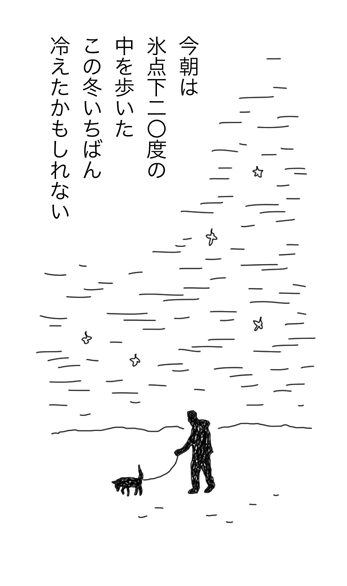 今朝は
氷点下二〇度の
中を歩いた
この冬いちばん
冷えたかもしれない